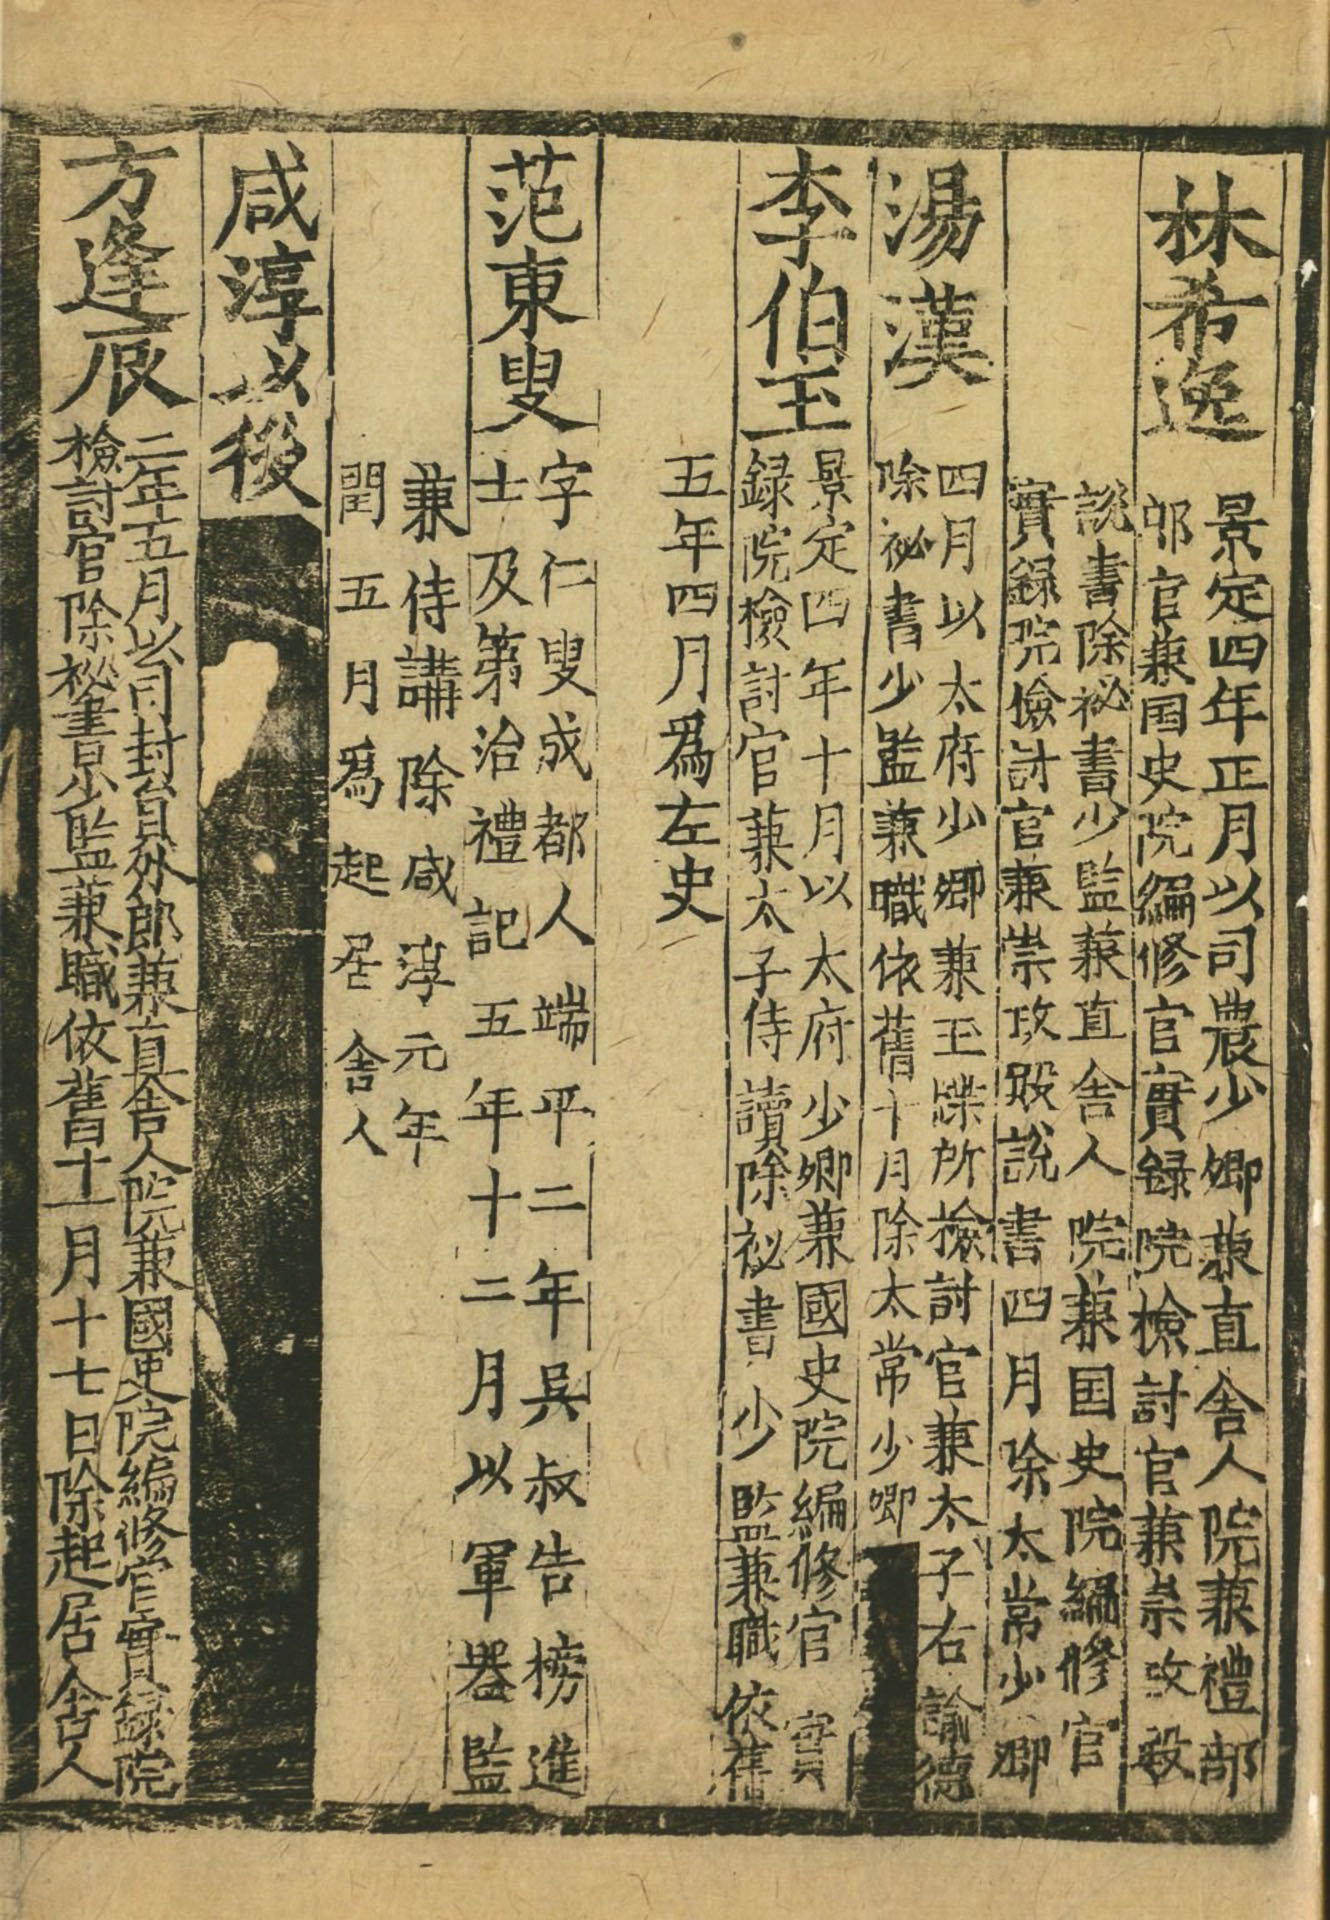 林希逸
景定四年正月以司農少卿兼直舍人院兼禮部
郎官兼国史院編修官實録院檢討官兼崇政殿
說書除祕書少監兼直舍人院兼国史院編修官
實録院檢討官兼崇政殿說書四月除太常少卿
湯漢
四月以太府少卿兼玉牒所檢討官兼太子右諭德
除祕書少監兼職依舊十月除太常少卿
李伯玉
景定四年十月以太府少卿兼國史院編修官實
録院檢討官兼太子侍讀除祕書少監兼職依舊
五年四月爲左史
范東叟
字仁叟成都人端平二年吳叔告榜進
士及第治禮記五年十二月以軍器監
兼侍講除咸淳元年
閏五月爲起居舍人
咸淳以後
方逢辰
二年五月以司封員外郎兼直舍人院兼國史院編修官實録院
檢討官除祕書少監兼職依舊十一月十七日除起居舍人